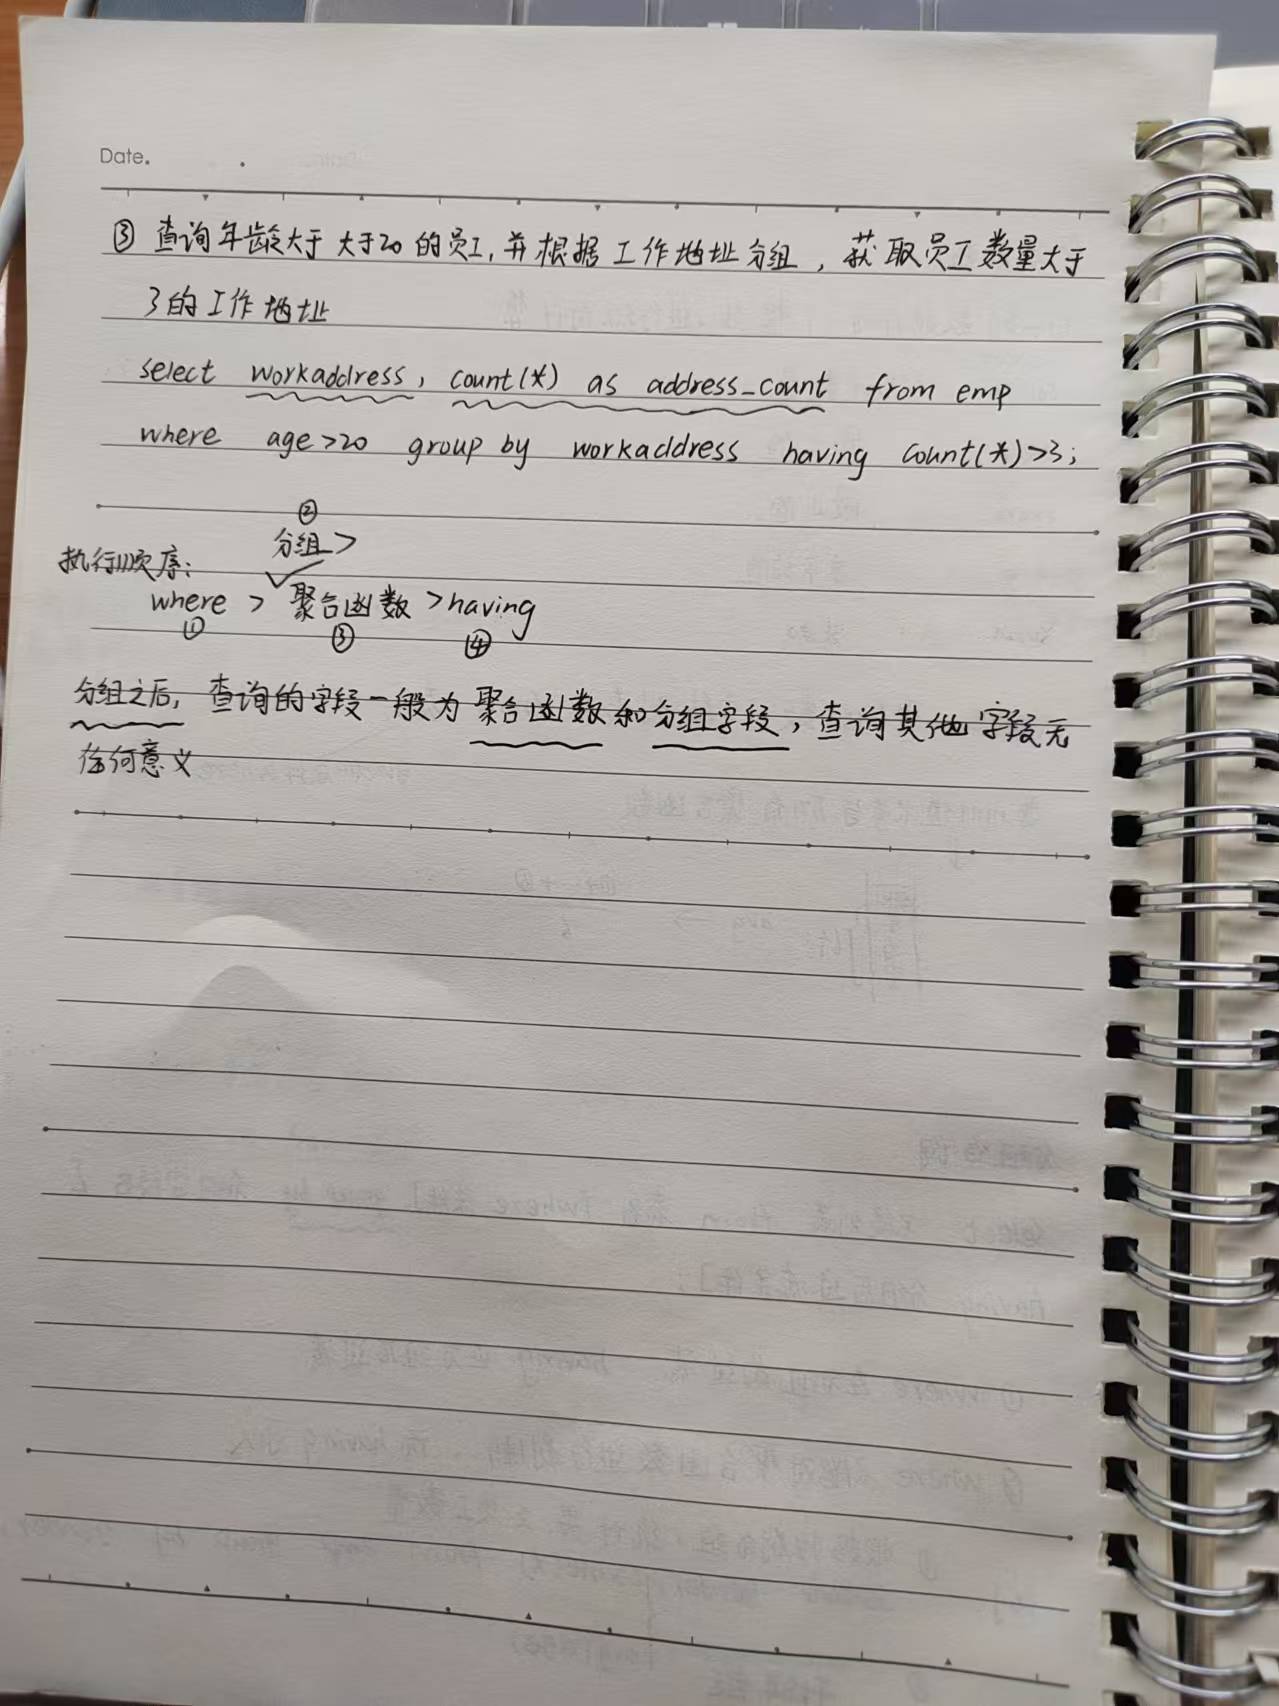 Date.
③ 查询年龄大于大于20的员工,并根据工作地址分组,获取员工数量大于
3的工作地址
select workaddress, count(*) as address_count from emp
where age>20 group by workaddress having count(*)>3;
②
分组>
执行顺序:
where > 聚合函数 >having
① ③ ④
分组之后,查询的字段一般为聚合函数和分组字段,查询其他字段无
任何意义